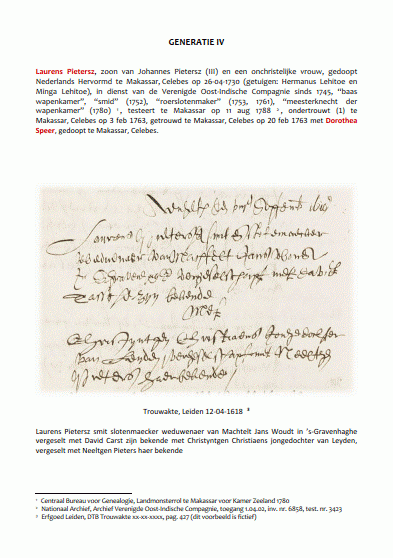 GENERATIE IV
Laurens Pietersz, zoon van Johannes Pietersz (III) en een onchristelijke vrouw, gedoopt
Nederlands Hervormd te Makassar, Celebes op 26-04-1730 (getuigen: Hermanus Lehitoe en
Minga Lehitoe), in dienst van de Verenigde Oost-Indische Compagnie sinds 1745, “baas
wapenkamer”, “smid” (1752), “roerslotenmaker” (1753, 1761), “meesterknecht der
wapenkamer” (1780) ¹, testeert te Makassar op 11 aug 1788 ², ondertrouwt (1) te
Makassar, Celebes op 3 feb 1763, getrouwd te Makassar, Celebes op 20 feb 1763 met Dorothea
Speer, gedoopt te Makassar, Celebes.
Laurens Pietersz smit slotenmaecker
weduwenaer van Machtelt Jans Woudt
in 's Gravenhaghe vergeselschapt met David
Carst zijn bekende
met
Christyntgen Christiaens jongedochter
van Leyden vergeselschapt met Neeltgen
Pieters haer bekende
Trouwakte, Leiden 12-04-1618 ³
Laurens Pietersz smit slotenmaecker weduwenaer van Machtelt Jans Woudt in 's-Gravenhaghe
vergeselt met David Carst zijn bekende met Christyntgen Christiaens jongedochter van Leyden,
vergeselt met Neeltgen Pieters haer bekende
¹ Centraal Bureau voor Genealogie, Landmonsterrol te Makassar voor Kamer Zeeland 1780
² Nationaal Archief, Archief Verenigde Oost-Indische Compagnie, toegang 1.04.02, inv. nr. 6858, test. nr. 3423
³ Erfgoed Leiden, DTB Trouwakte xx-xx-xxxx, pag. 427 (dit voorbeeld is fictief)